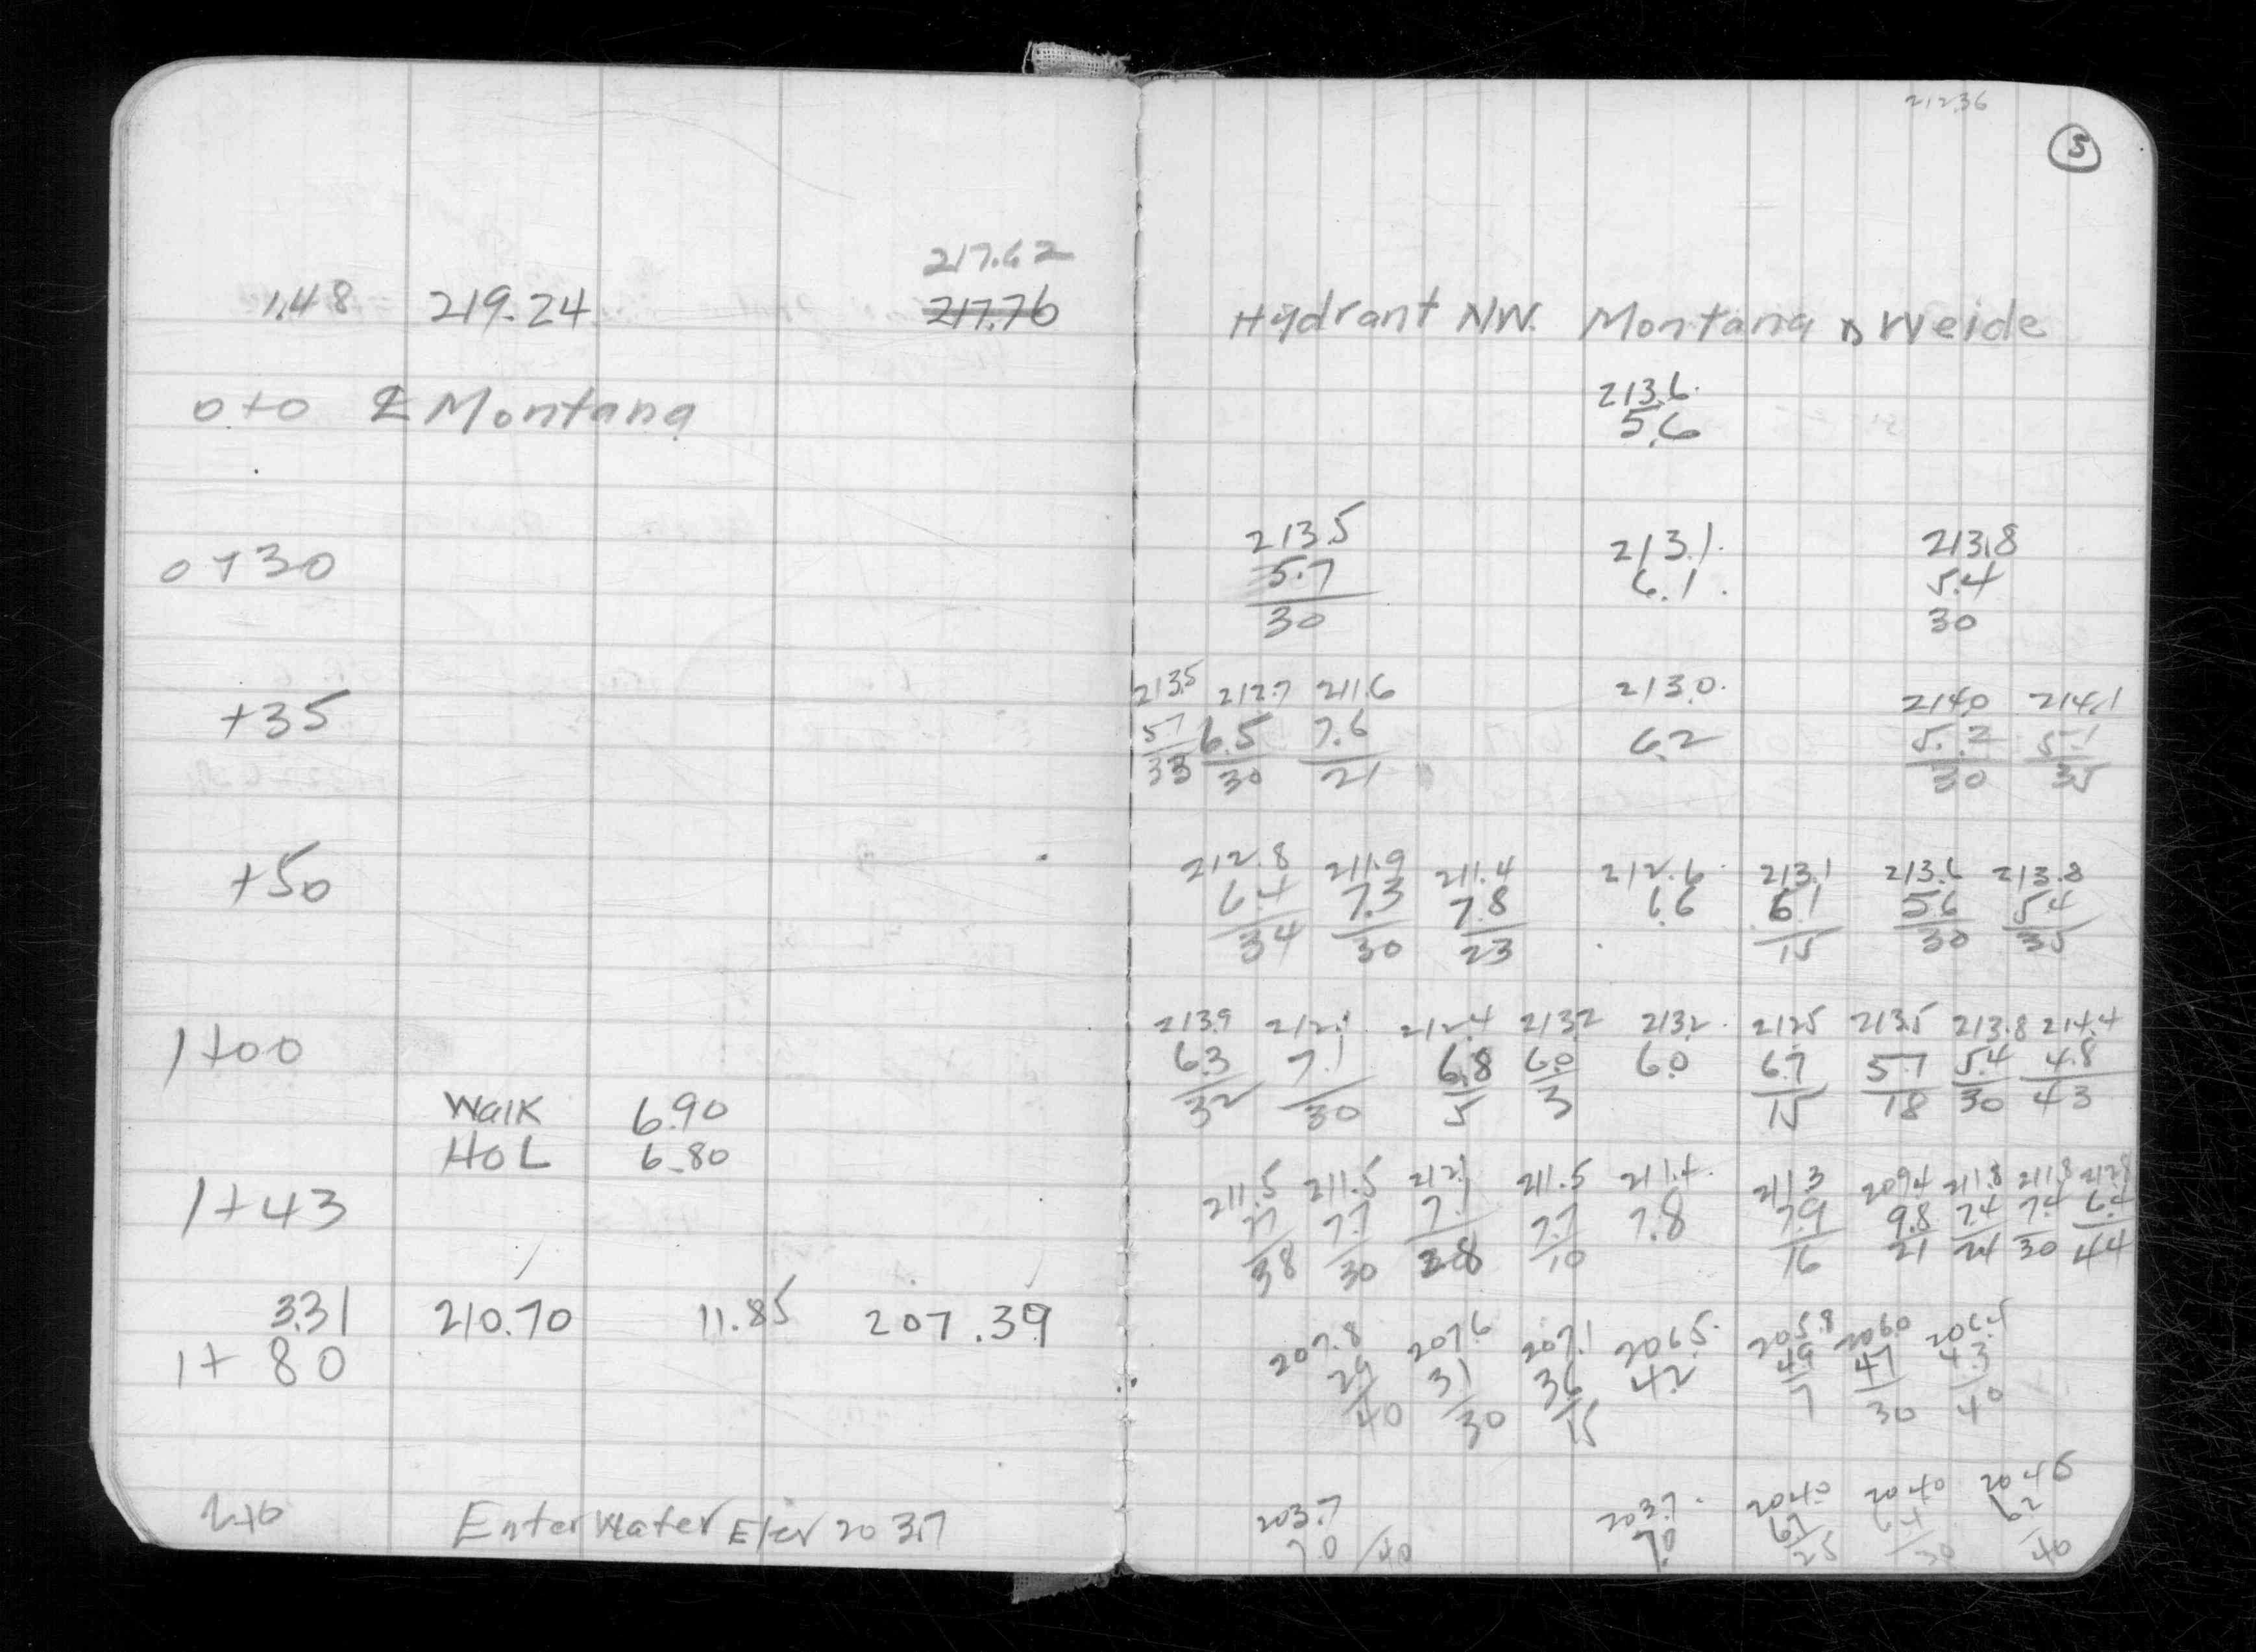 21236
5
217.62
1.48 219.24 217.76 Hydrant NW. Montana & Weide
213.6
0+0 ℄ Montana 5.6
213.5 213.1 213.8
0+30 5.7 6.1 5.4
30 30
213.5 212.7 211.6 213.0 214.0 214.1
+35 57 6.5 7.6 6.2 5.2 5.1
33 30 21 30 35
212.8 211.9 211.4 212.6 213.1 213.6 213.8
+50 6.4 7.3 7.8 6.6 6.1 5.6 5.4
34 30 23 15 30 35
2139 212.1 212.4 2132 2132 2125 2135 213.8 214.4
1+00 6.3 7.1 6.8 6.0 6.0 6.7 5.7 5.4 4.8
32 30 5 3 15 18 30 43
Walk 6.90
HOL 6.80
211.5 211.5 212.1 211.5 211.4 2113 2094 211.8 211.8 212.8
1+43 7.7 7.7 7.1 7.7 7.8 7.9 9.8 7.4 7.4 6.4
38 30 28 10 16 21 24 30 44
3.31 210.70 11.85 207.39
207.8 207.6 207.1 206.5 205.8 206.0 206.4
1+80 29 31 36 42 49 47 43
40 30 15 7 30 40
203.7 203.7 2040 2040 2045
2+0 Enter Water Elev 203.7 7.0/40 7.0 67 67 62
25 30 40